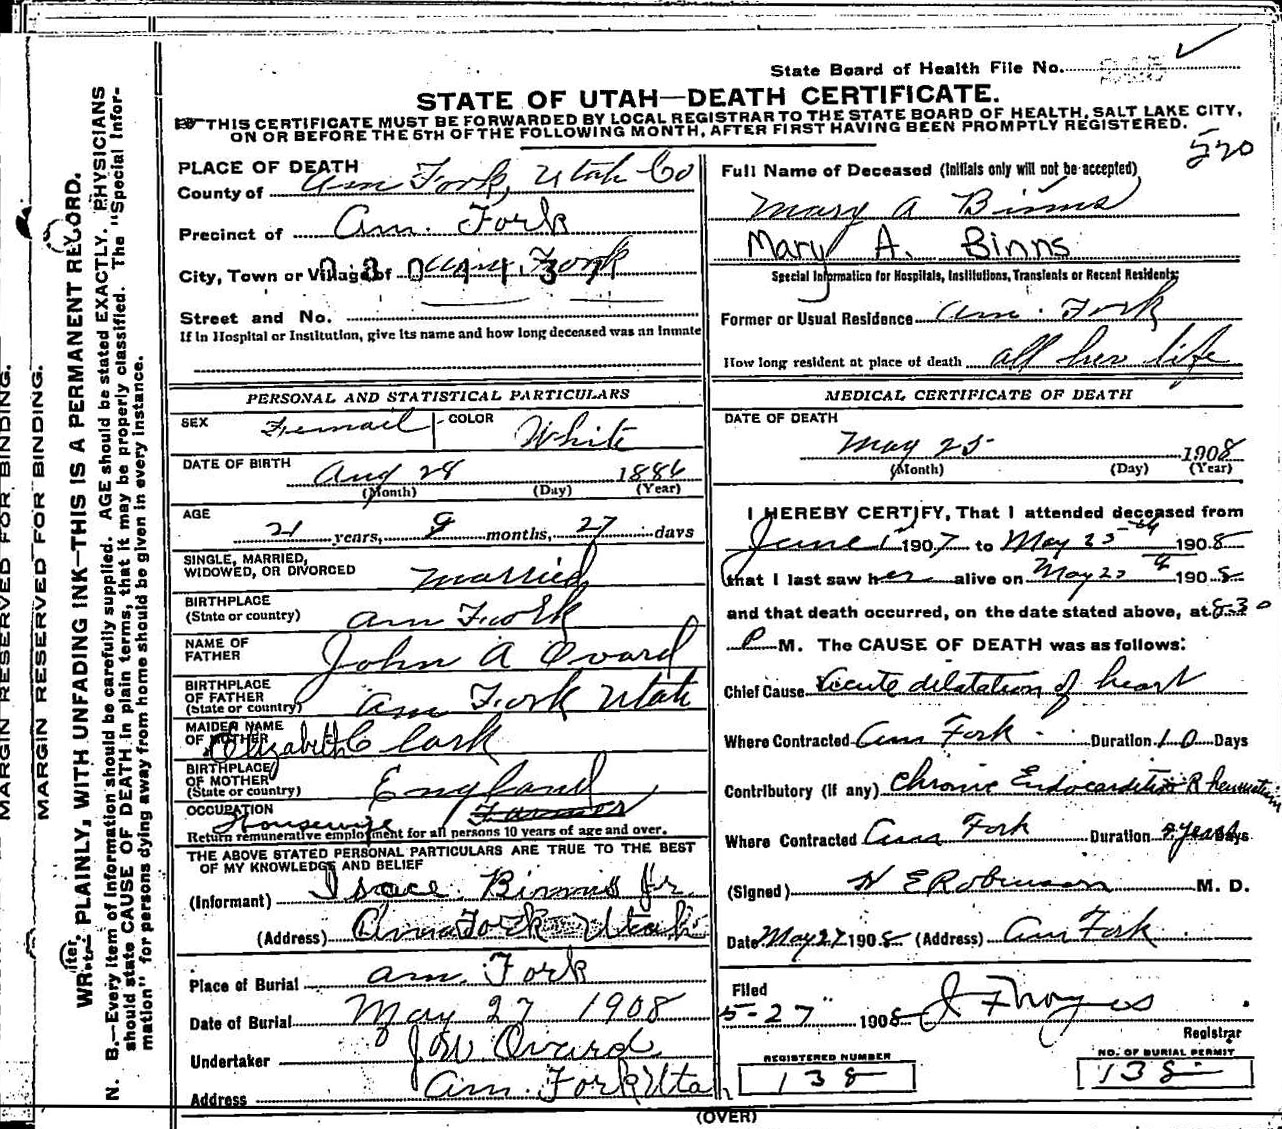 State Board of Health File No.
STATE OF UTAH—DEATH CERTIFICATE.
THIS CERTIFICATE MUST BE FORWARDED BY LOCAL REGISTRAR TO THE STATE BOARD OF HEALTH, SALT LAKE CITY,
ON OR BEFORE THE 5TH OF THE FOLLOWING MONTH, AFTER FIRST HAVING BEEN PROMPTLY REGISTERED.
520
PLACE OF DEATH
County of Am Fork, Utah Co
Precinct of Am. Fork
City, Town or Village of Am. Fork
Street and No.
If in Hospital or Institution, give its name and how long deceased was an inmate
Full Name of Deceased (Initials only will not be accepted)
Mary A Binns
Mary A. Binns
Special Information for Hospitals, Institutions, Transients or Recent Residents:
Former or Usual Residence Am. Fork
How long resident at place of death all her life
PERSONAL AND STATISTICAL PARTICULARS
SEX Femail COLOR White
DATE OF BIRTH
Aug 28 1886
(Month) (Day) (Year)
AGE
21 years, 8 months, 27 days
SINGLE, MARRIED,
WIDOWED, OR DIVORCED married
BIRTHPLACE
(State or country) Am Fwork
NAME OF
FATHER John A Ovard
BIRTHPLACE
OF FATHER
(State or country) Am Fork Utah
MAIDEN NAME
OF MOTHER Elizabeth Clark
BIRTHPLACE
OF MOTHER
(State or country) England
OCCUPATION Farmer
Housewife
Return remunerative employment for all persons 10 years of age and over.
THE ABOVE STATED PERSONAL PARTICULARS ARE TRUE TO THE BEST
OF MY KNOWLEDGE AND BELIEF
(Informant) Isace Binns Jr
(Address) Am Fork Utah
Place of Burial Am. Fork
Date of Burial May 27 1908
Undertaker J W Ovard
Address Am. Fork Utah
MEDICAL CERTIFICATE OF DEATH
DATE OF DEATH
May 25 1908
(Month) (Day) (Year)
I HEREBY CERTIFY, That I attended deceased from
June 1st 1907 to May 25th 1908
that I last saw her alive on May 1908
and that death occurred, on the date stated above, at 8-30
P M. The CAUSE OF DEATH was as follows:
Chief Cause Acute dilatation of heart
Where Contracted Am Fork. Duration 10 Days
Contributory (if any) Chronic Endocarditis Rheumatism
Where Contracted Am Fork Duration years Days
(Signed) W E Robinson M. D.
Date May 27 1908 (Address) Am Fork.
Filed
5-27" 1908
Registrar
REGISTERED NUMBER
138
NO. OF BURIAL PERMIT
138
(OVER)
MARGIN RESERVED FOR BINDING.
MARGIN RESERVED FOR BINDING.
WRITE PLAINLY, WITH UNFADING INK—THIS IS A PERMANENT RECORD.
N. B.—Every item of information should be carefully supplied. AGE should be stated EXACTLY. PHYSICIANS
should state CAUSE OF DEATH in plain terms, that it may be properly classified. The "Special Infor-
mation" for persons dying away from home should be given in every instance.